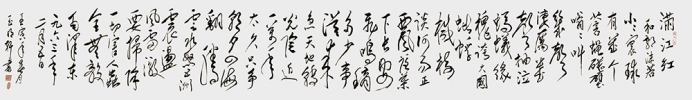 满江红
和郭沫若
小小寰球
有几个
苍蝇碰壁
嗡嗡叫
几声
凄厉几声
抽泣
蚂蚁缘
槐夸大国
蚍蜉
撼树
谈何易正
西风落叶
下长安
飞鸣镝
多少事
从来急
天地转
光阴迫
一万年
太久只争
朝夕四海
翻腾
云水怒五洲
震荡
风雷激
要扫除
一切害人虫
全无敌
毛泽东
一九六三年
二月五日
壬寅年